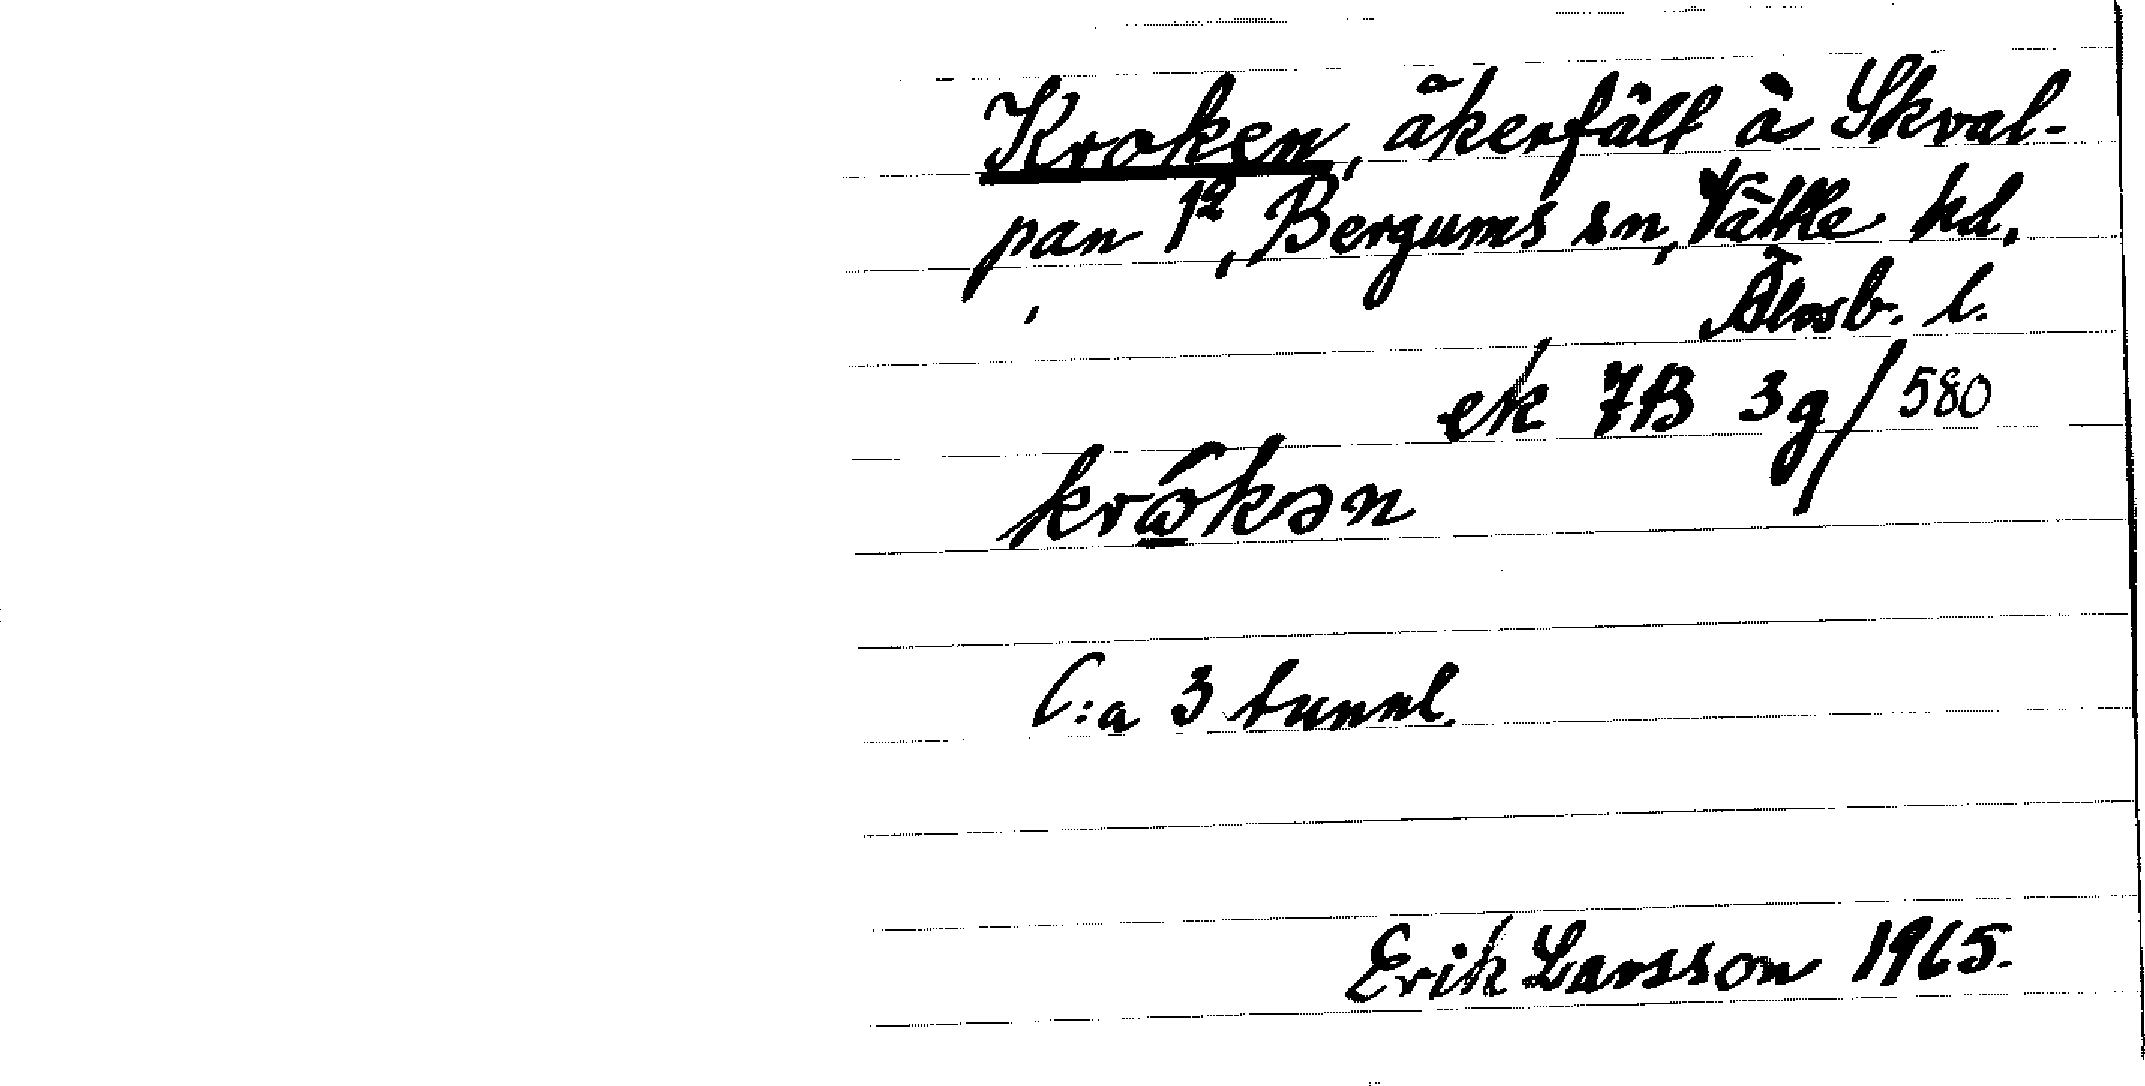 Kroken, åkerfält å Skval-
pan 1², Bergums sn, Vättle hd,
Älvsb. l.
ek 7B 3g/580
krώ̲kən
C:a 3 tunnl.
Erik Larsson 1965.